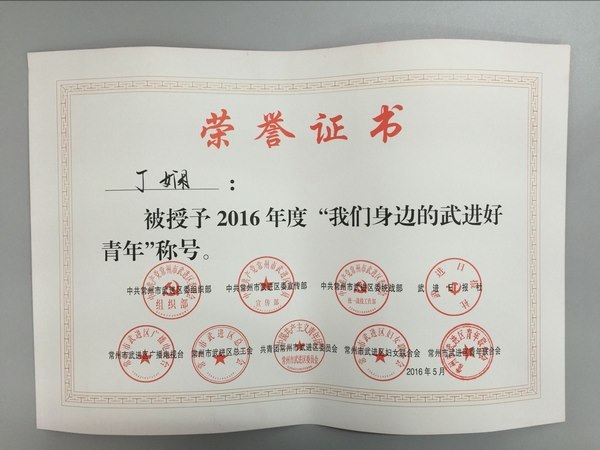 荣誉证书
丁娴：
被授予2016年度“我们身边的武进好
青年”称号。
中共常州市武进区委组织部 中共常州市武进区委宣传部 中共常州市武进区委统战部 武进日报社
常州市武进区广播电视台 常州市武进区总工会 共青团常州市武进区委员会 常州市武进区妇女联合会 常州市武进区青年联合会
2016年5月